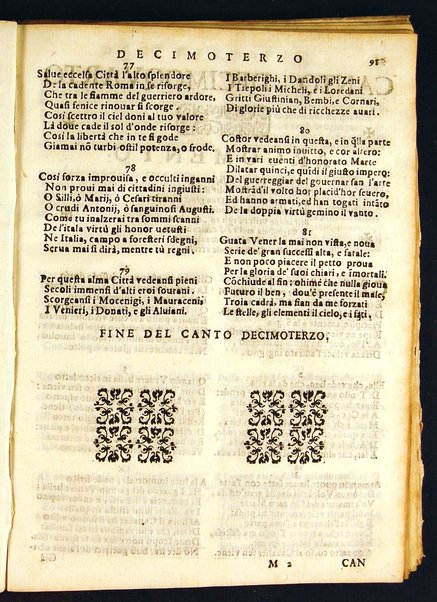 DECIMOTERZO
91
77
Salue eccelsa Città l'alto splendore
De la cadente Roma in se risorge,
Che tra le fiamme del guerriero ardore,
Quasi fenice rinouar si scorge.
Cosi scettro il ciel doni al tuo valore
Là doue cade il sol d'onde risorge:
Cosi la libertà che in te si gode
Giamai nō turbi ostil potenza, o frode.
78
Cosi forza improuisa, e occulti inganni
Non proui mai di cittadini ingiusti:
O Silli, ò Marij, ò Cesari tiranni
O crudi Antonij, ò sanguinosi Augusti.
Come tu inalzerai tra sommi scanni
De l'itala virtù gli honor uetusti
Ne Italia, campo a foresteri sdegni,
Serua mai si dirà, mentre tù regni.
79
Per questa alma Città vedeansi pieni
Secoli immensi d'alti eroi sourani.
Scorgeansi i Mocenigi, i Mauraceni,
I Venieri, i Donati, e gli Aluiani.
I Barberighi, i Dandoli gli Zeni
I Tiepoli i Micheli, e i Loredani
Gritti Giustinian, Bembi, e Cornari,
Di glorie più che di ricchezze auari.
80
Costor vedeansi in questa, e in q̄lla parte
Mostrar animo inuitto, e cor altero:
E in vari euenti d'honorato Marte
Dilatar quinci, e quīdi il giusto impero:
Del guerreggiar, del gouernar san l'arte
Mostrād'il volto hor placid'hor feuero,
Ed hanno armati, ed han togati intāto
De la doppia virtù gemino il vanto.
81
Guata Vener la mai non vista, e noua
Serie de' gran successi alta, e fatale:
E non poco piacere il petto proua
Per la gloria de' suoi chiari, e īmortali.
Cōchiude al fin: ohimè che nulla gioua
Futuro il ben, dou'è presente il male,
Troia cadrà, ma fian da me forzati
Le stelle, gli elementi il cielo, e i fati,
FINE DEL CANTO DECIMOTERZO,
M 2
CAN